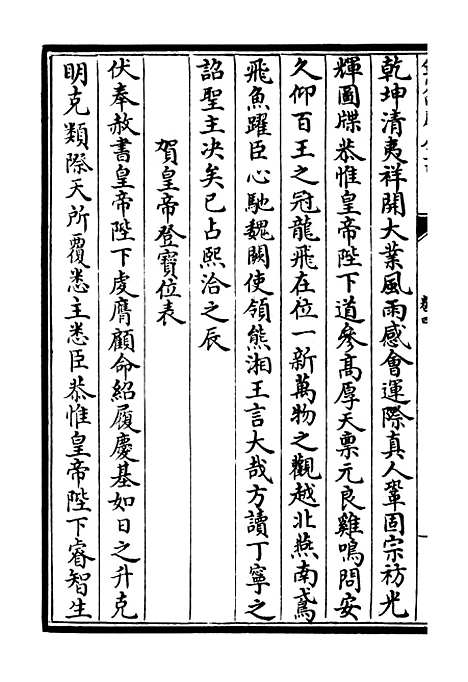 乾坤清夷祥開大業風雨感會運際真人鞏固宗祊光
輝圖牒恭惟皇帝陛下道參髙厚天禀元良雞鳴問安
久仰百王之冠龍飛在位一新萬物之觀越北燕南鳶
飛魚躍臣心馳魏闕使領熊湘王言大哉方讀丁寧之
詔聖主决矣已占熙洽之辰
賀皇帝登寶位表
伏奉赦書皇帝陛下䖍膺顧命紹履慶基如日之升克
明克類際天所覆悉主悉臣恭惟皇帝陛下睿智生